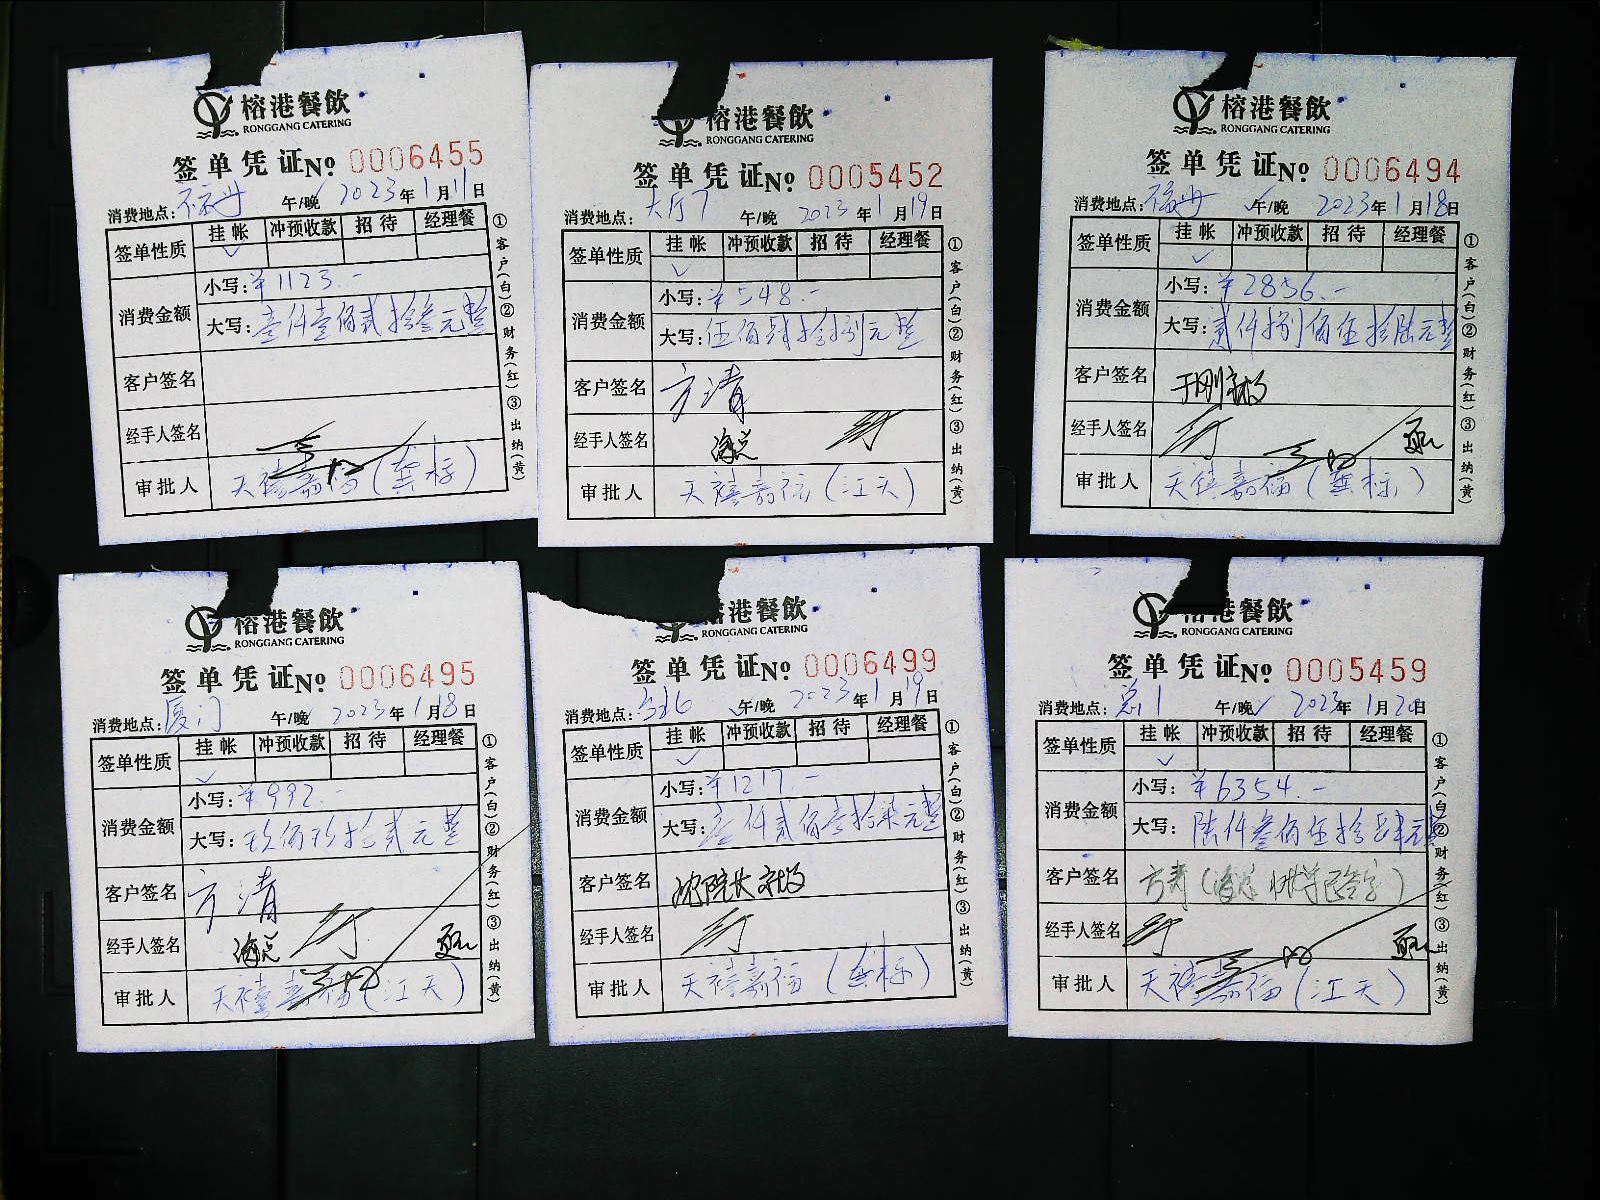 榕港餐飲
RONGGANG CATERING
签单凭证No 0006455
消费地点: 午/晚 2023年1月11日
签单性质 挂帐 冲预收款 招待 经理餐
✓
消费金额 小写:¥1123.-
大写:壹仟壹佰贰拾叁元整
客户签名
经手人签名
审批人 天禧嘉福(龚标)
①客户(白)②财务(红)③出纳(黄)
榕港餐飲
RONGGANG CATERING
签单凭证No 0005452
消费地点:大厅7 午/晚 2023年1月19日
签单性质 挂帐 冲预收款 招待 经理餐
✓
消费金额 小写:¥548.-
大写:伍佰肆拾捌元整
客户签名 方清
经手人签名 海总
审批人 天禧嘉福(江天)
①客户(白)②财务(红)③出纳(黄)
榕港餐飲
RONGGANG CATERING
签单凭证No 0006494
消费地点: 午/晚 2023年1月18日
签单性质 挂帐 冲预收款 招待 经理餐
✓
消费金额 小写:¥2856.-
大写:贰仟捌佰伍拾陆元整
客户签名
经手人签名
审批人 天禧嘉福(龚标)
①客户(白)②财务(红)③出纳(黄)
榕港餐飲
RONGGANG CATERING
签单凭证No 0006495
消费地点:厦门 午/晚 2023年1月18日
签单性质 挂帐 冲预收款 招待 经理餐
✓
消费金额 小写:¥992.-
大写:玖佰玖拾贰元整
客户签名 方清
经手人签名 海总
审批人 天禧嘉福(江天)
①客户(白)②财务(红)③出纳(黄)
榕港餐飲
RONGGANG CATERING
签单凭证No 0006499
消费地点: ✓午/晚 2023年1月19日
签单性质 挂帐 冲预收款 招待 经理餐
✓
消费金额 小写:¥1217.-
大写:壹仟贰佰壹拾柒元整
客户签名
经手人签名
审批人 天禧嘉福(龚标)
①客户(白)②财务(红)③出纳(黄)
榕港餐飲
RONGGANG CATERING
签单凭证No 0005459
消费地点:总1 午/晚✓ 2023年1月20日
签单性质 挂帐 冲预收款 招待 经理餐
✓
消费金额 小写:¥6354.-
大写:陆仟叁佰伍拾肆元整
客户签名
经手人签名
审批人 天禧嘉福(江天)
①客户(白)②财务(红)③出纳(黄)